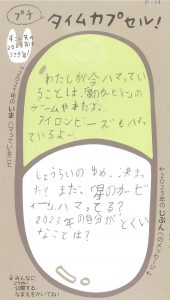 プチ
タイムカプセル!
すこし先の
2023年は
うさぎ年
2023年のいまハマっていること
わたしが今ハマってい
ることは、星のカービィの
ゲームや本だよ。
アイロンビーズもハマっ
ているよー。
←2023年のじぶんへのメッセージ
しょうらいのゆめ、決まっ
た?まだ、星のカービ
ィーにハマってる?
2023年の自分がとくい
なことは?
↓みんなに
公開する
なまえをかいてね!